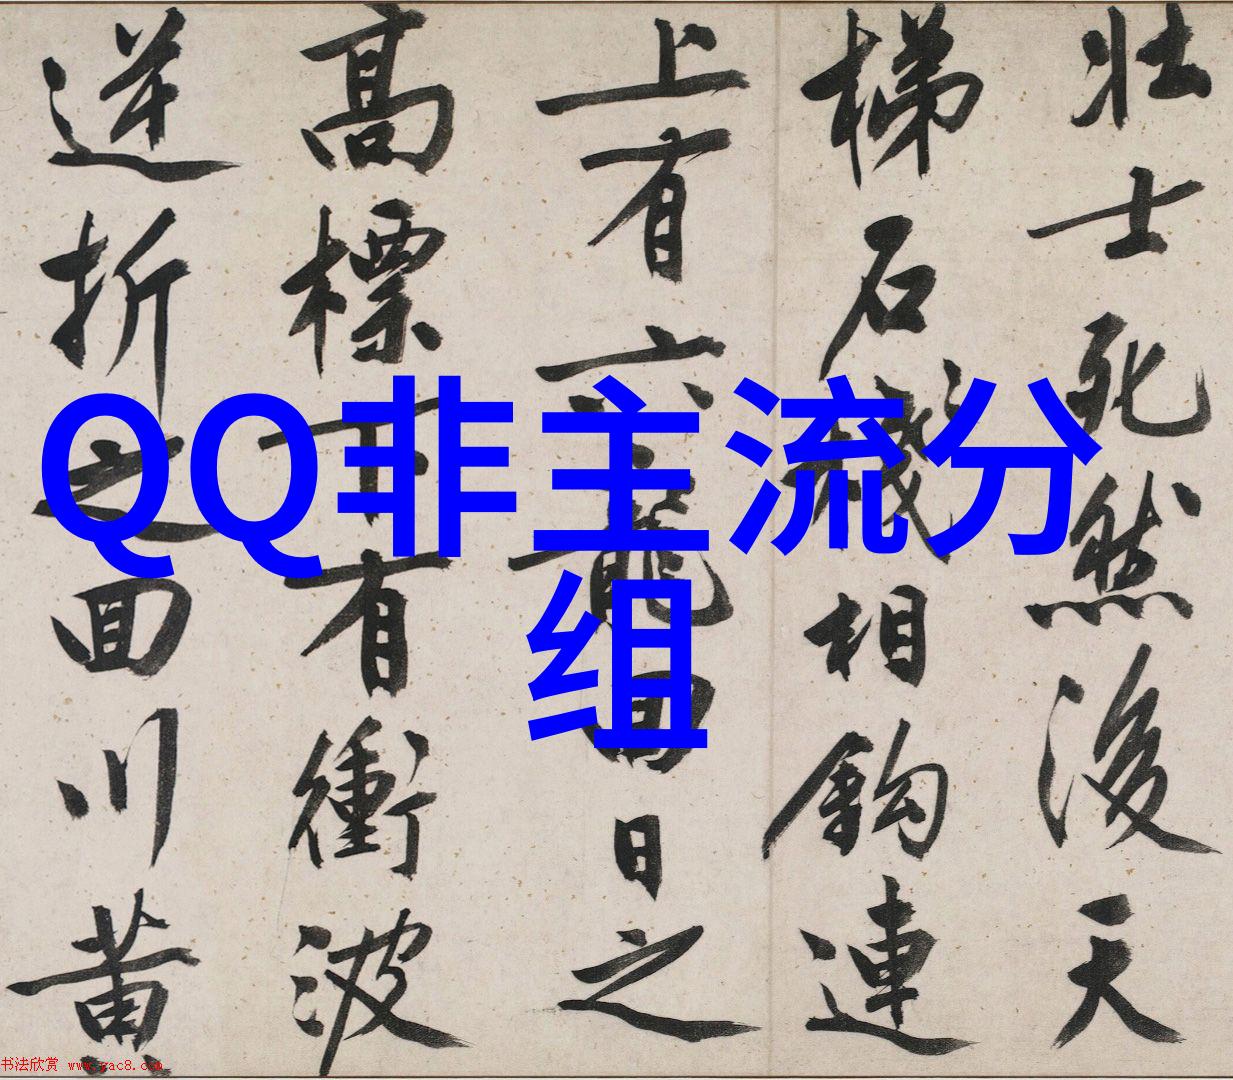 QQ非主流分
组
壯士死然後天
梯石棧相鉤連
上有六龍回日之
高標下有衝波
逆折之回川黄
书法欣赏 www.yac8.com